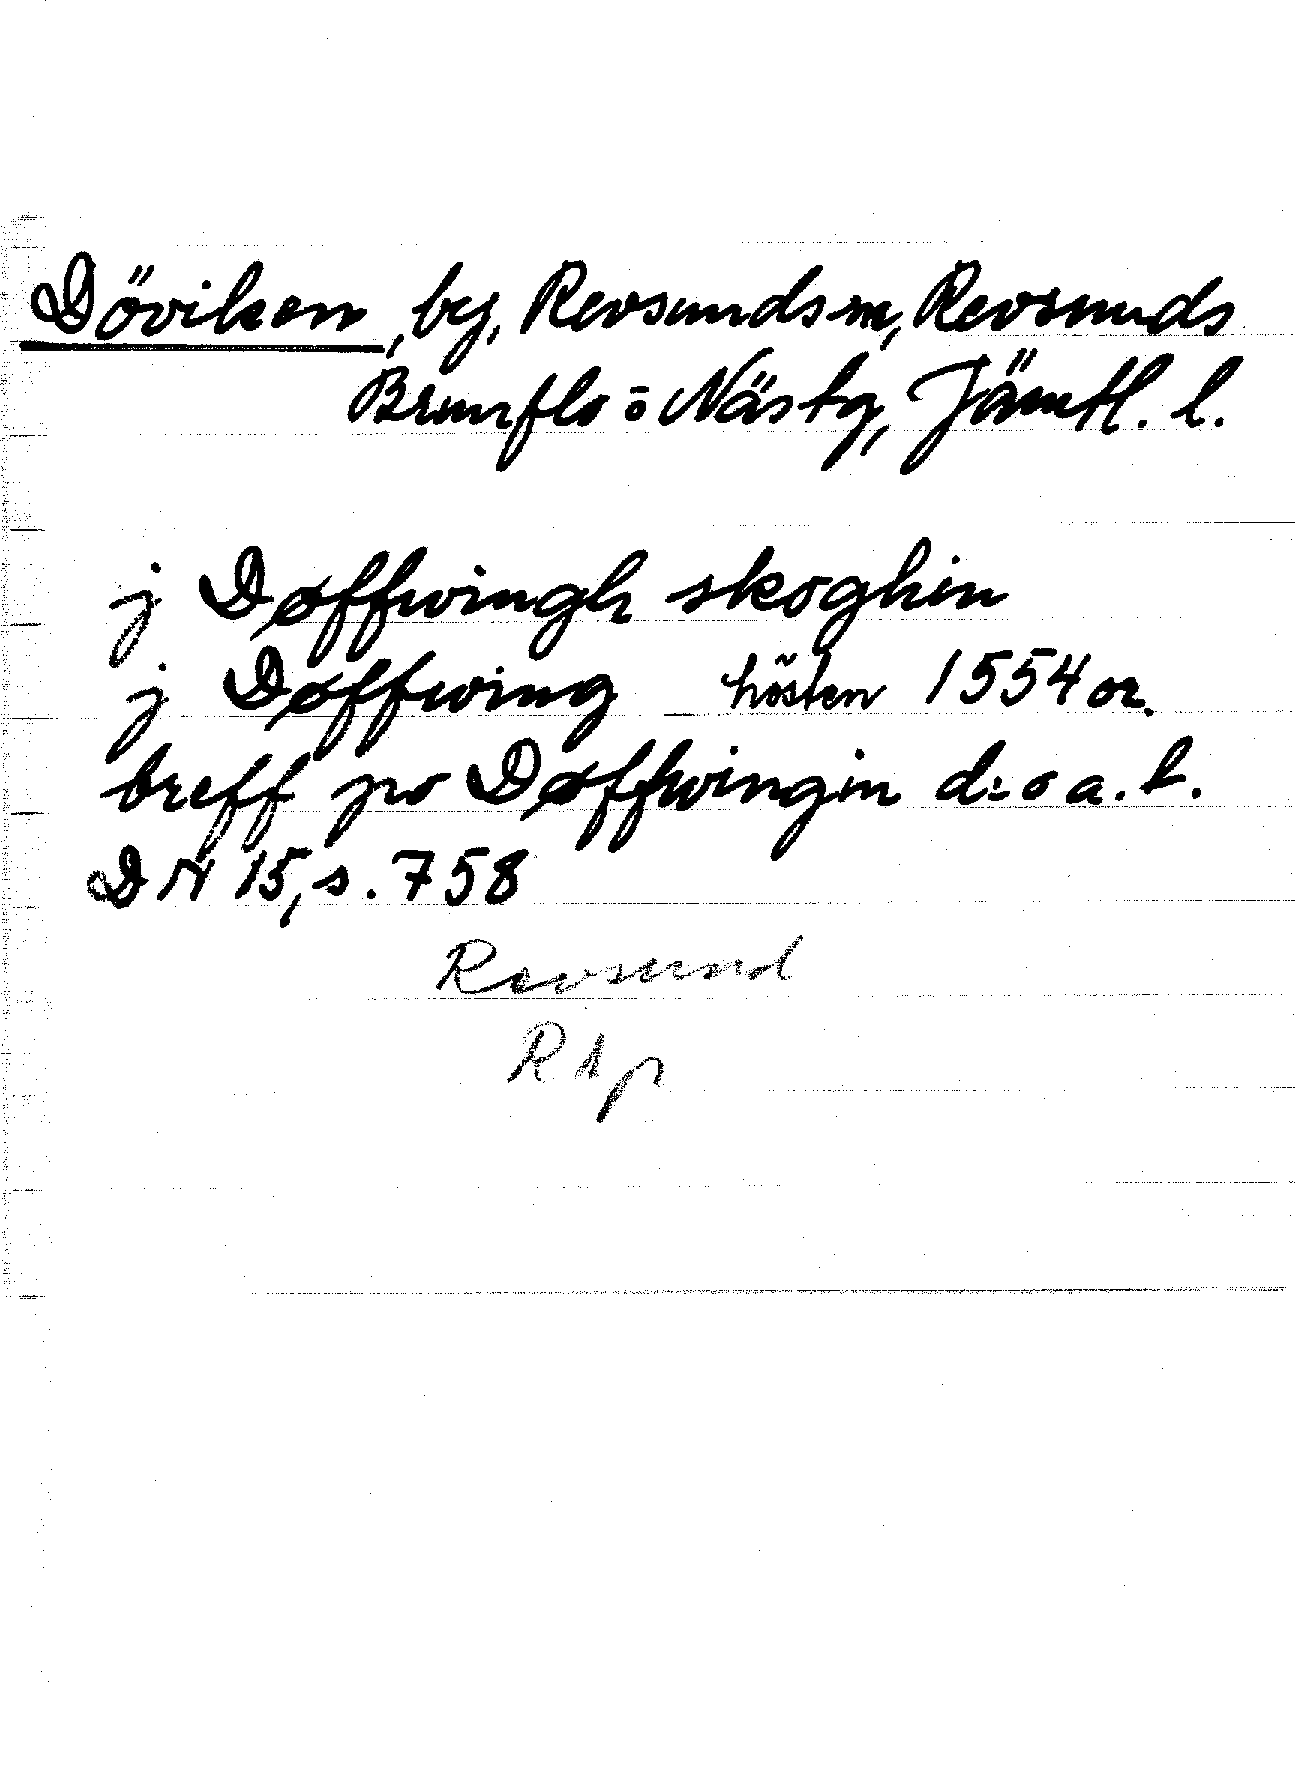 Döviken, by, Revsunds sn, Revsunds
Brunflo o Näs tg, Jämtl. l.
j Døffwingh skoghin
j Døffwing hösten 1554 or.
breff po Døffwingin d:o a. b.
DN 15, s. 758
Revsund
Rsp